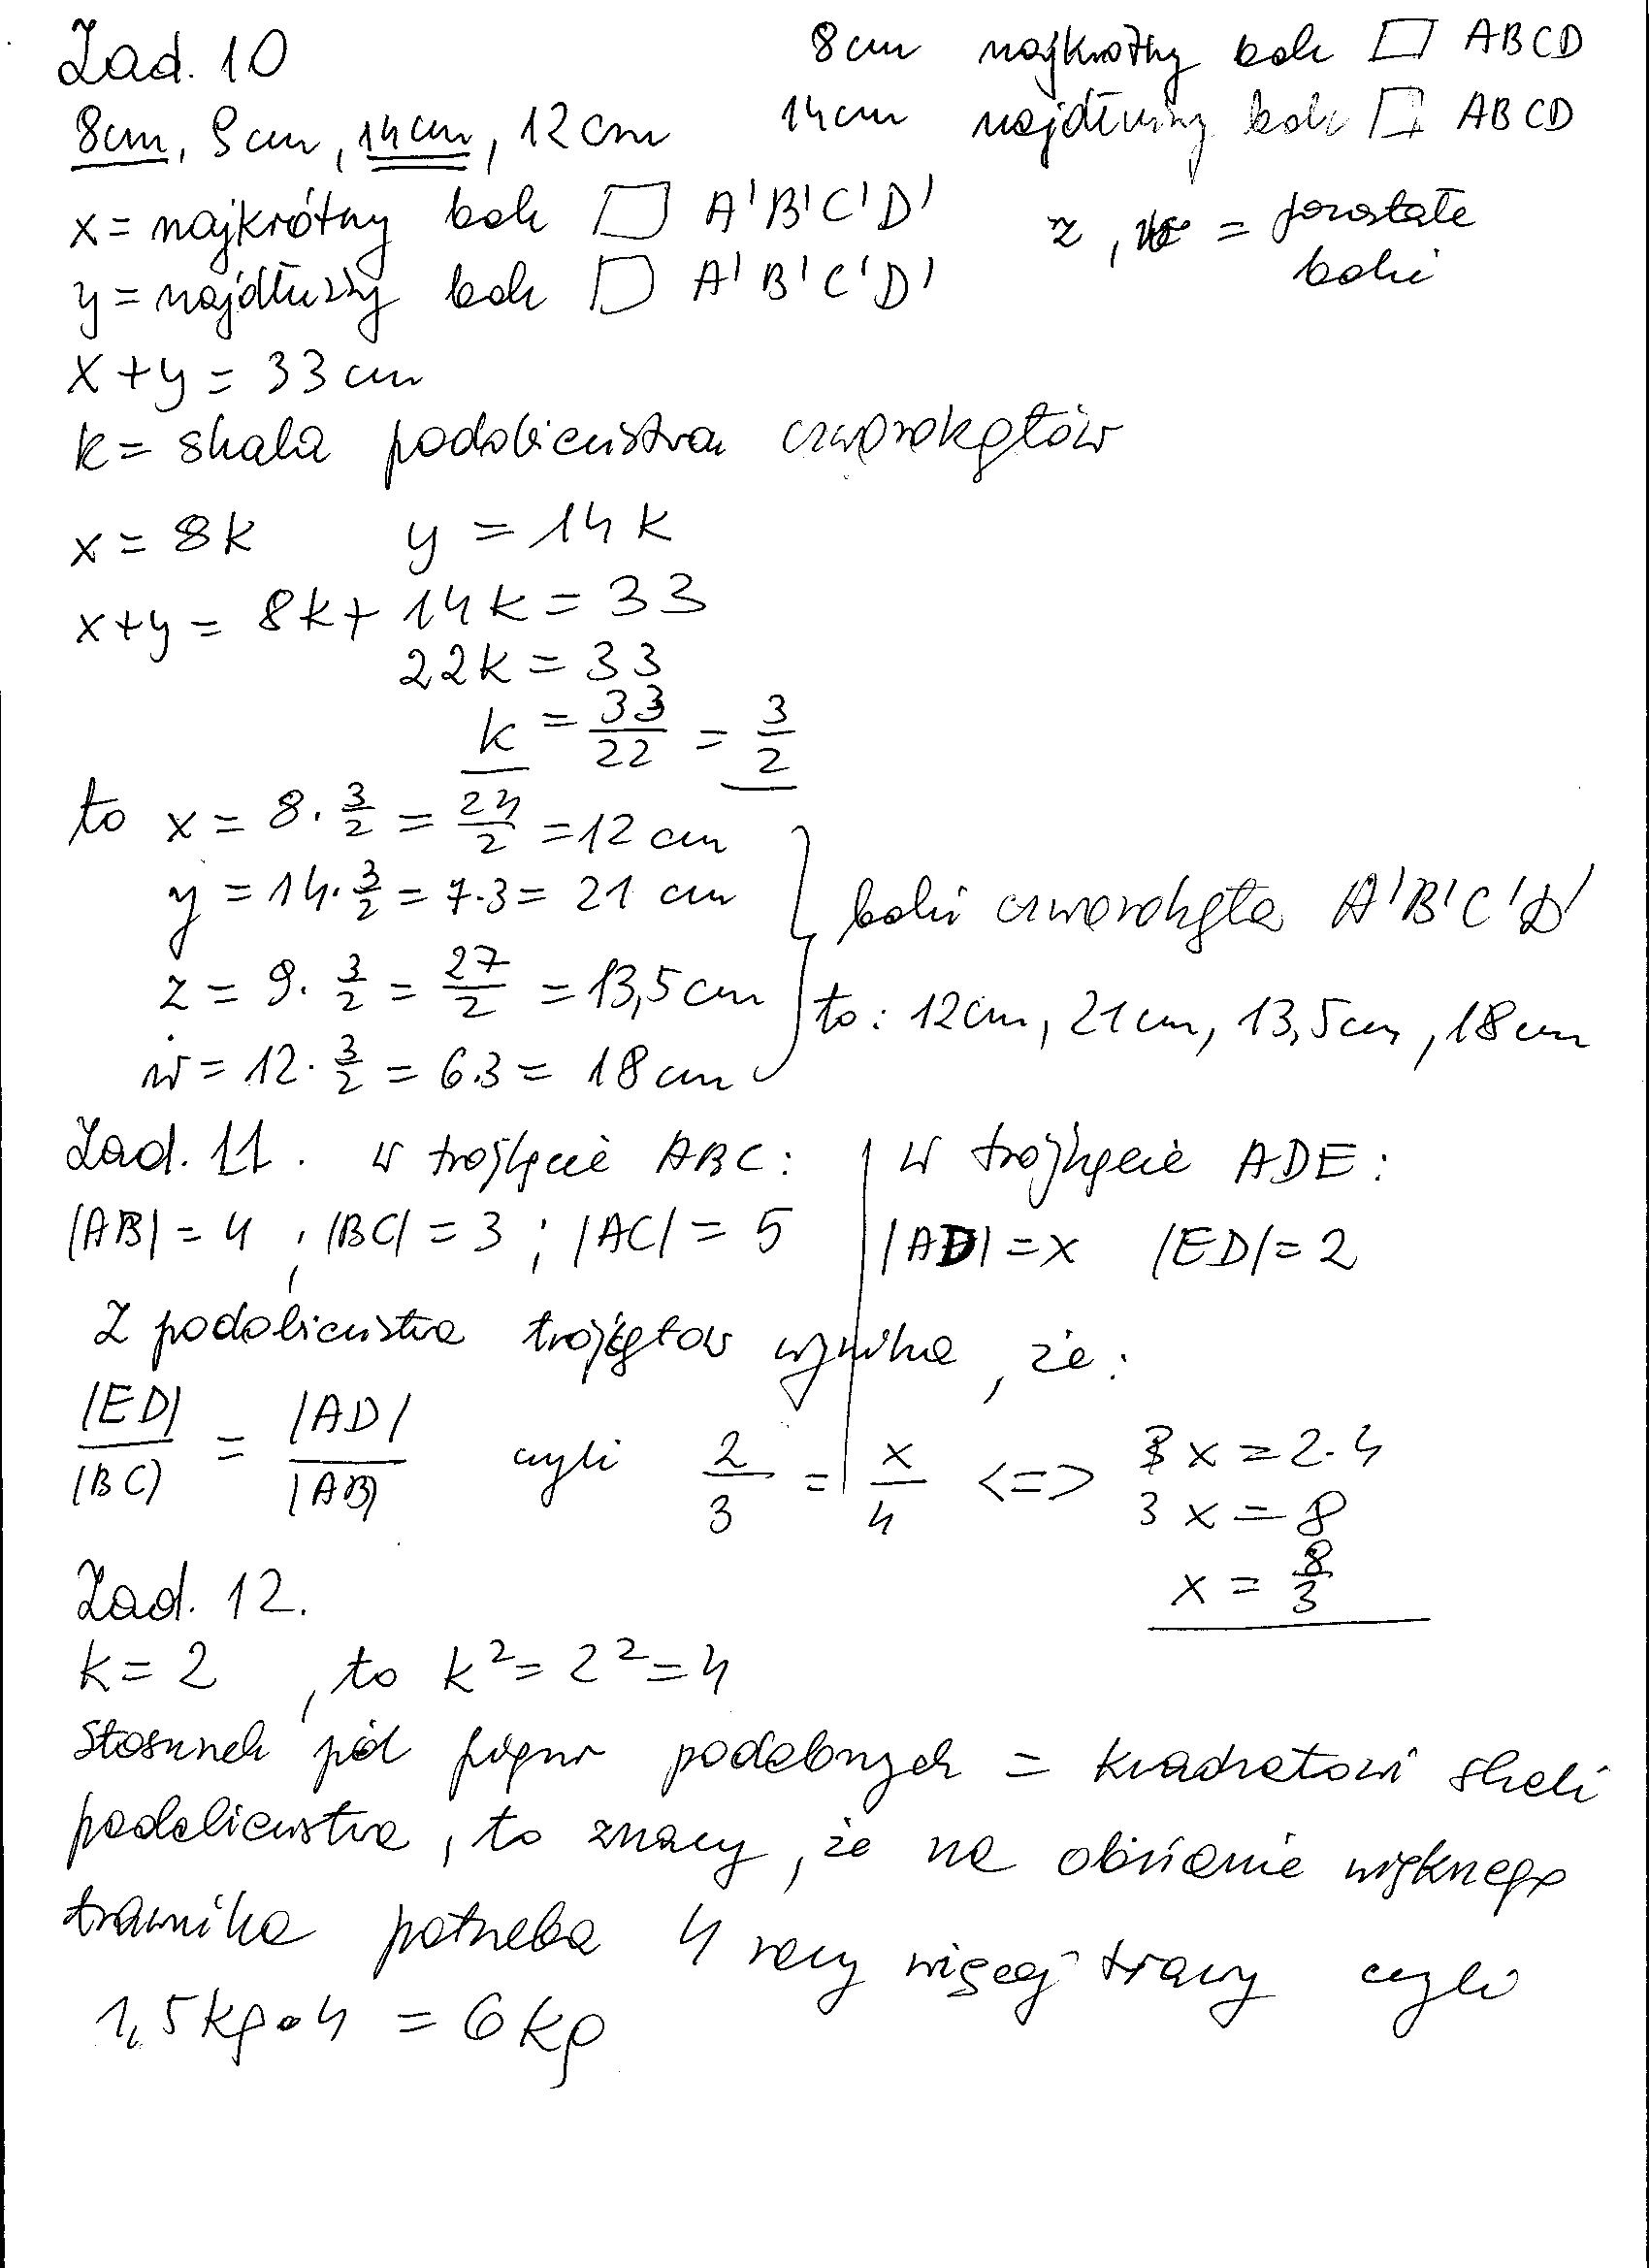 Zad. 10
8cm najkrótszy bok ▱ ABCD
8cm, 9cm, 14cm, 12cm
14cm najdłuższy bok ▱ ABCD
x = najkrótszy bok ▱ A'B'C'D'
z, w = pozostałe boki
y = najdłuższy bok ▱ A'B'C'D'
x + y = 33 cm
k = skala podobieństwa czworokątów
x = 8k y = 14k
x + y = 8k + 14k = 33
22k = 33
k = 33/22 = 3/2
to x = 8 · 3/2 = 24/2 = 12 cm
y = 14 · 3/2 = 7 · 3 = 21 cm
z = 9 · 3/2 = 27/2 = 13,5 cm
w = 12 · 3/2 = 6 · 3 = 18 cm
boki czworokąta A'B'C'D'
to: 12cm, 21cm, 13,5cm, 18cm
Zad. 11. W trójkącie ABC:
|AB| = 4 ; |BC| = 3 ; |AC| = 5
W trójkącie ADE:
|AD| = x |ED| = 2
Z podobieństwa trójkątów wynika, że:
|ED|/|BC| = |AD|/|AB| czyli 2/3 = x/4 <=> 3x = 2 · 4
3x = 8
x = 8/3
Zad. 12.
k = 2, to k² = 2² = 4
Stosunek pól figur podobnych = kwadratowi skali
podobieństwa, to znaczy, że na obsianie większego
trawnika potrzeba 4 razy więcej trawy czyli
1,5kg · 4 = 6kg